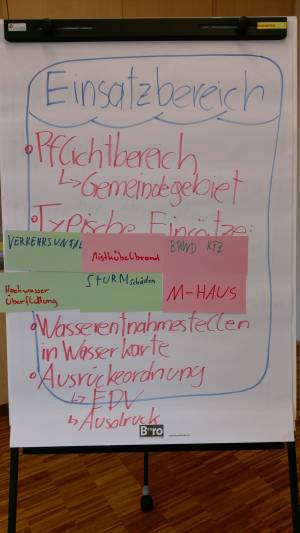 Einsatzbereich
Pflichtbereich
↳ Gemeindegebiet
Typische Einsätze:
VERKEHRSUNFAL
Mistkübelbrand
BRAND KFZ
Hochwasser
Überflutung
STURMschäden
M-HAUS
Wasserentnahmestellen
in Wasserkarte
Ausrückeordnung
↳ EDV
↳ Ausdruck